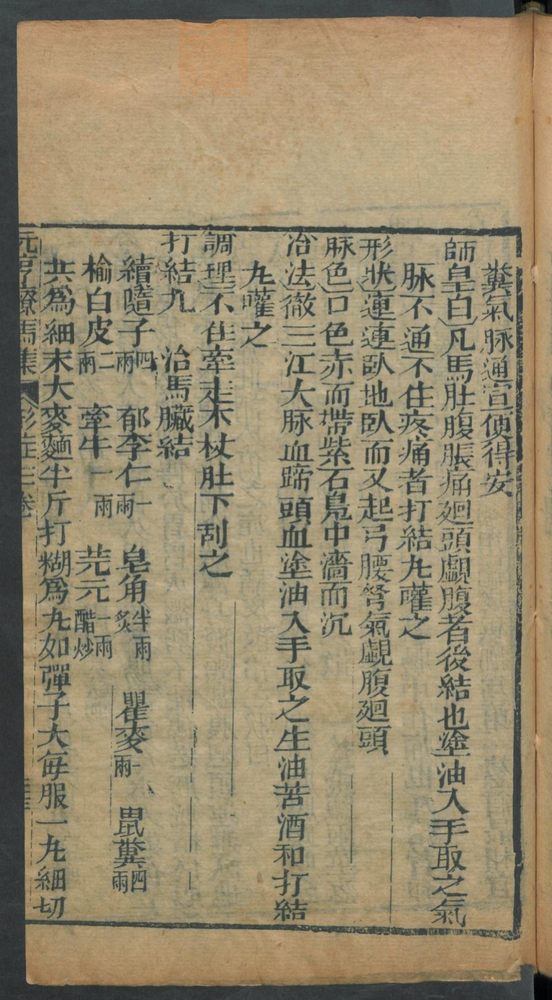 糞氣脉通宣便得安
師皇曰凡馬肚腹脹痛廻頭覷腹者後結也塗油入手取之氣
脉不通不住疼痛者打結丸嚾之
形狀連連卧地卧而又起弓腰弩氣覷腹廻頭
脉色口色赤而帶紫右鳧中濇而沉
治法徹三江大脉血蹄頭血塗油入手取之生油苦酒和打結
丸嚾之
調理不住牽走木杖肚下刮之
打結丸 治馬臟結
續隨子四兩 郁李仁一兩 皂角半兩炙 瞿麥一兩 鼠糞四兩
榆白皮二兩 牽牛一兩 芫元一兩醋炒
共爲細末大麥麵半斤打糊爲丸如彈子大每服一丸細切
元亨療馬集